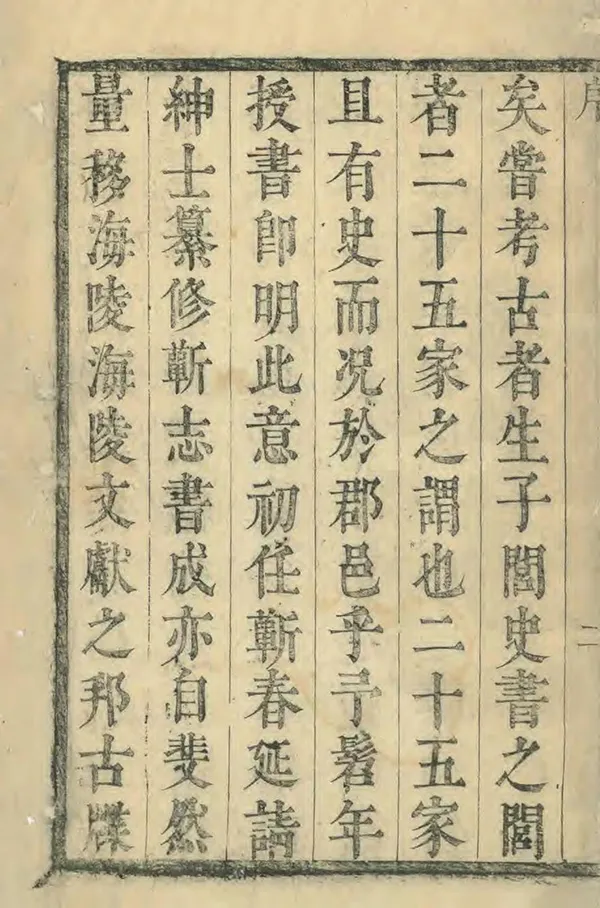 序
二
矣嘗考古者生子閭史書之閭
者二十五家之謂也二十五家
且有史而况於郡邑乎予髫年
授書卽明此意初任蘄春延請
紳士纂修蘄志書成亦自斐然
量移海陵海陵文獻之邦古牒